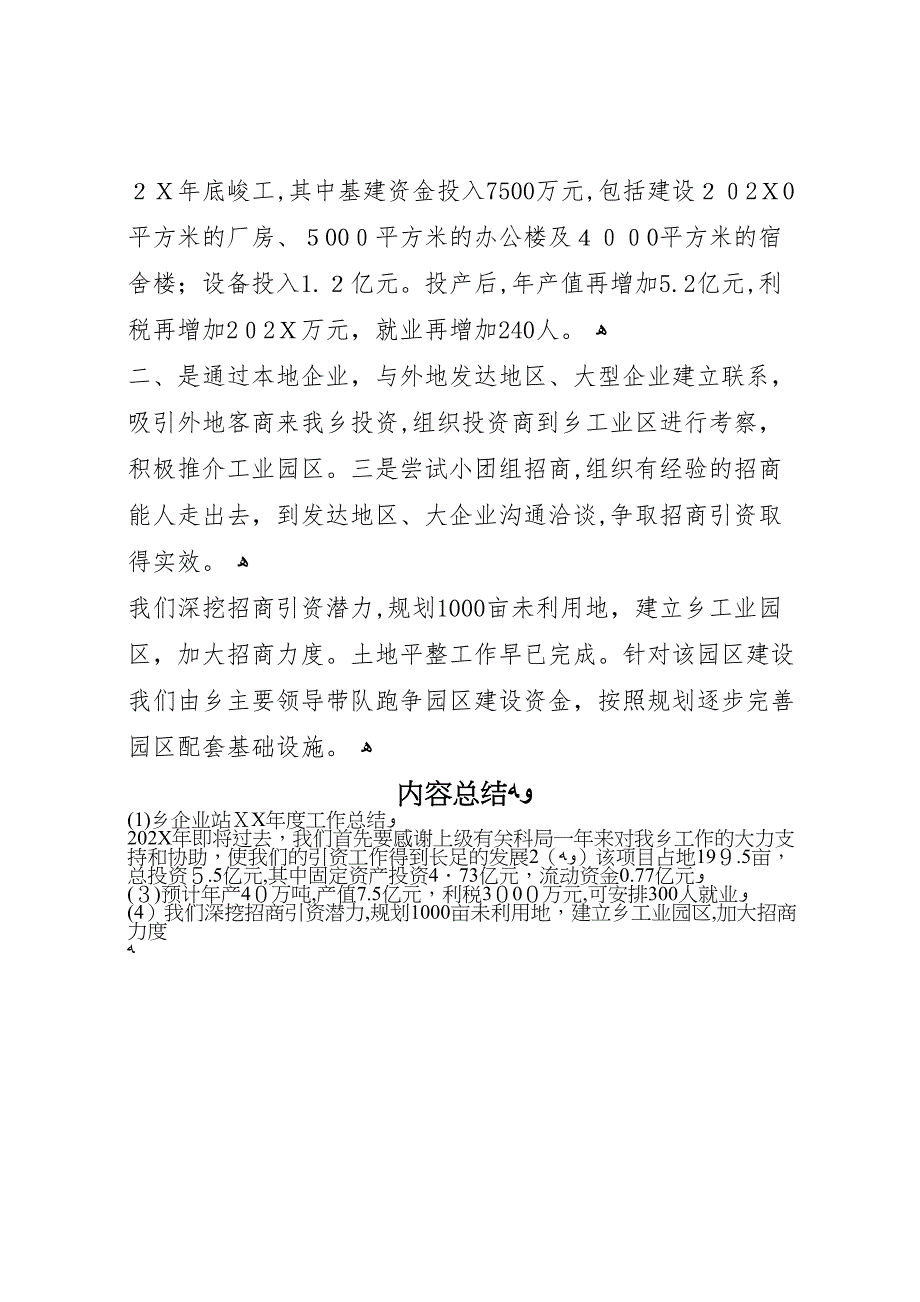 ２Ｘ年底峻工,其中基建资金投入7500万元,包括建设２０２Ｘ０
平方米的厂房、５０００平方米的办公楼及４０００平方米的宿
舍楼；设备投入1.２亿元。投产后,年产值再增加5.2亿元,利
税再增加２０２Ｘ万元，就业再增加240人。ﻫ
二、是通过本地企业，与外地发达地区、大型企业建立联系，
吸引外地客商来我乡投资,组织投资商到乡工业区进行考察，
积极推介工业园区。三是尝试小团组招商,组织有经验的招商
能人走出去，到发达地区、大企业沟通洽谈,争取招商引资取
得实效。ﻫ
我们深挖招商引资潜力,规划1000亩未利用地，建立乡工业园
区，加大招商力度。土地平整工作早已完成。针对该园区建设
我们由乡主要领导带队跑争园区建设资金，按照规划逐步完善
园区配套基础设施。ﻫ
内容总结
(1)乡企业站ＸＸ年度工作总结
202X年即将过去，我们首先要感谢上级有关科局一年来对我乡工作的大力支
持和协助，使我们的引资工作得到长足的发展2（）该项目占地19９.5亩，
总投资５.5亿元,其中固定资产投资4．73亿元，流动资金0.77亿元
(３)预计年产4０万吨,产值7.5亿元，利税3０００万元,可安排300人就业
(4）我们深挖招商引资潜力,规划1000亩未利用地，建立乡工业园区,加大招商
力度